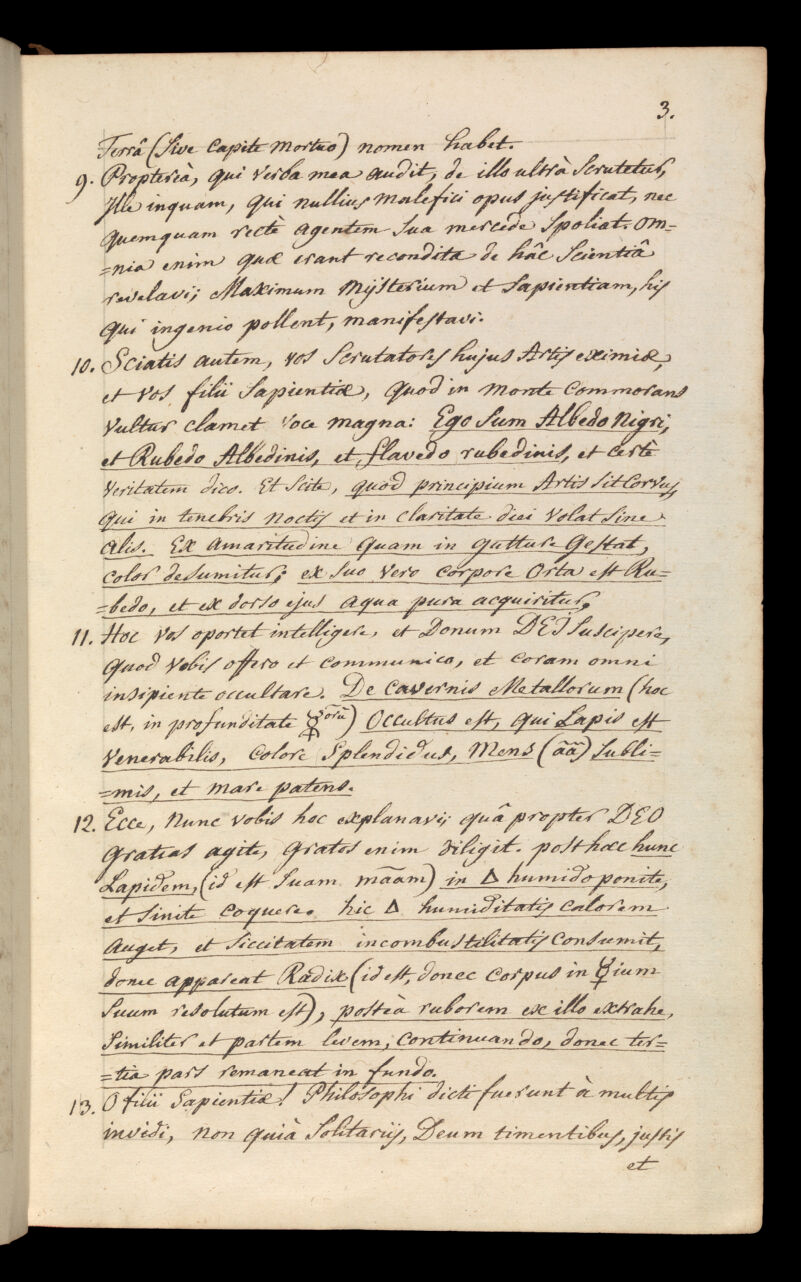 3.
Terrâ (sive Capite mortuo) nomen habet.
9. Proptereà, qui verba mea audit, de illo ultrà Scrutetur,
Ille inquam, qui nullius malefici opus justificat, nec
quemquam rectè agentem sua mercede Spoliat. Om=
=nia enim quæ erant recondita de hâc Scientiâ
revelavi; Maximum Mÿsterium et Sapientiam, his
qui ingenio pollent, manifestavi.
10. Sciatis autem, vos Scrutatores hujus Artis eximiæ,
et vos filii Sapientiæ, quod in monte Commorans
Vultur clamet voce magna: Ego Sum Albedo Nigri,
et Rubedo Albedinis, et flavedo rubedinis, et certè
veritatem dico. Et Scite, quod principium Artis Sit Corvus,
qui in tenebris noctis et in claritate diei Volat Sine
alis. Ex amaritudine quam in gutture Gestat,
color desumitur; ex Suo vero corpore Orta est Ru=
=bedo, et ex dorso ejus aqua pura acquiritur.
11. Hoc vos oportet intelligere, et Donum DEI Suscipere,
quod vobis offero et communico, et coram omni
insipiente occultare. De cavernis Metallorum (hoc
est, in profunditate ☿orũ) Occultus est, qui Lapis est
Venerabilis, colore Splendidus, Mens (ãã) Subli=
=mis, et mare patens.
12. Ecce, Nunc vobis hoc explanavi; quâ propter DEO
Gratias agite, Gratos enim diligit. post hæc hunc
Lapidem, (id est Suam mãam) in Δ humido ponite,
et Sinite coquere. hic Δ humiditatis calorem
auget, et Siccitatem incombustilitatis Consumit,
donec appareat Radix (id est, donec Corpus in ☿ium
Suum resolutum est), posteà ruborem ex illo extrahe,
Similiter et partem levem, Continuando, donec ter=
=tia pars remaneat in fundo.
13. O filii Sapientiæ! Philosophi dicti fuerunt à multis
invidi, non quià Solitarijs, Deum timentibus, justis
et